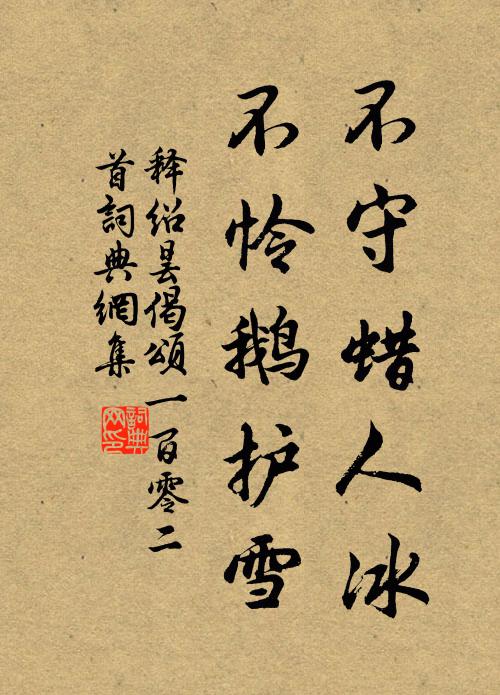 不守蜡人冰
不怜鹅护雪
释绍昙偈颂一百零二
首詞典網集
詞典
网印